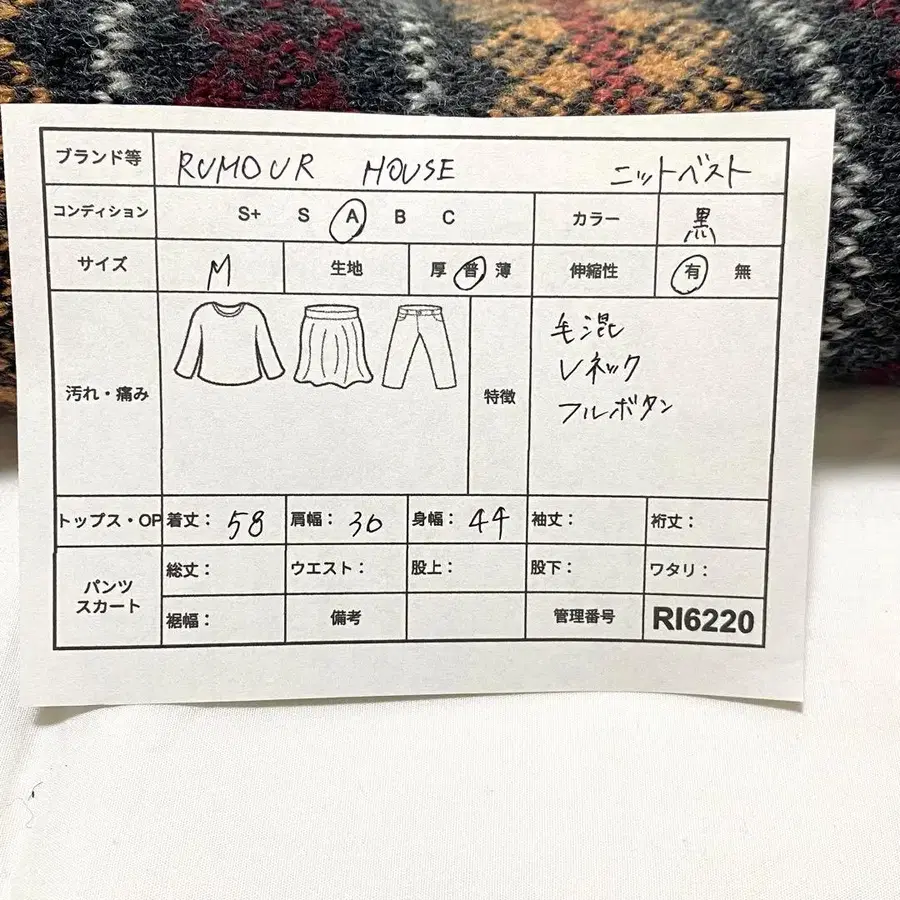 ブランド等 RUMOUR HOUSE ニットベスト
コンディション S+ S A B C カラー 黒
サイズ M 生地 厚 普 薄 伸縮性 有 無
汚れ・痛み 特徴 毛混
Vネック
フルボタン
トップス・OP 着丈: 58 肩幅: 36 身幅: 44 袖丈: 裄丈:
パンツ
スカート
総丈: ウエスト: 股上: 股下: ワタリ:
裾幅: 備考 管理番号 RI6220